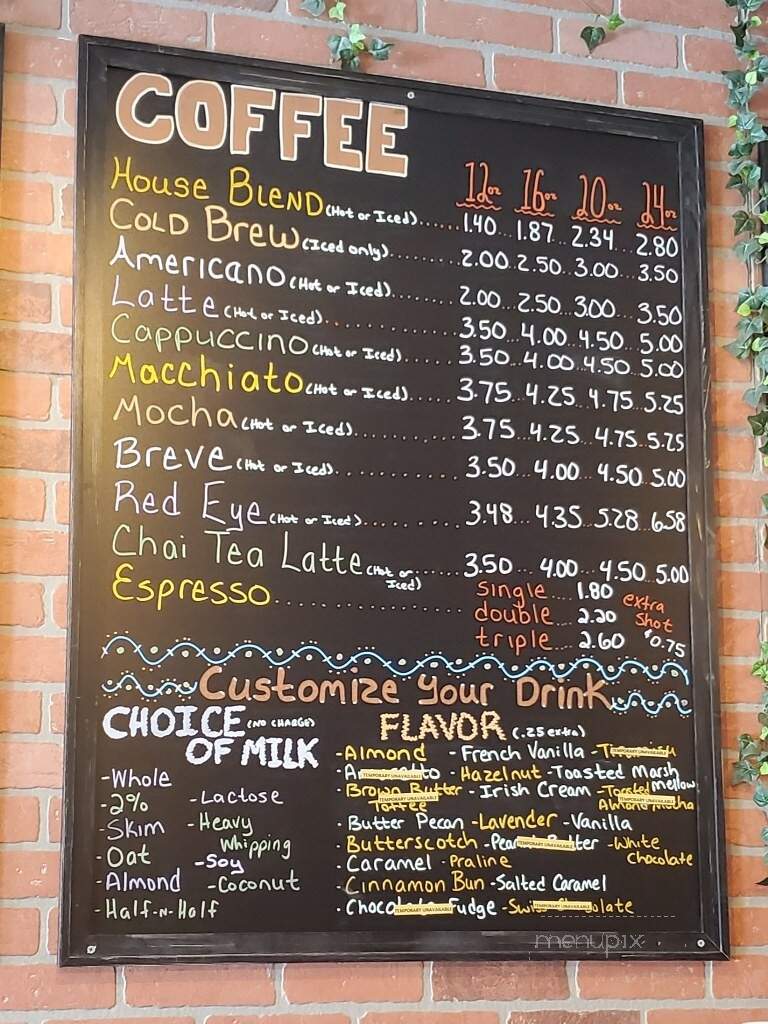 COFFEE
12oz 16oz 20oz 24oz
House Blend (Hot or Iced)...... 1.40 1.87 2.34 2.80
Cold Brew (Iced only)....... 2.00 2.50 3.00 3.50
Americano (Hot or Iced)....... 2.00 2.50 3.00 3.50
Latte (Hot or Iced)............... 3.50 4.00 4.50 5.00
Cappuccino (Hot or Iced)...... 3.50 4.00 4.50 5.00
Macchiato (Hot or Iced)..... 3.75 4.25 4.75 5.25
Mocha (Hot or Iced)............ 3.75 4.25 4.75 5.25
Breve (Hot or Iced)............. 3.50 4.00 4.50 5.00
Red Eye (Hot or Iced).......... 3.48 4.35 5.28 6.58
Chai Tea Latte (Hot or Iced) ..... 3.50 4.00 4.50 5.00
Espresso.................. single 1.80
double 2.20
triple 2.60
extra
Shot
$0.75
Customize Your Drink
CHOICE (NO CHARGE)
OF MILK
-Whole
-2%
-Skim
-Oat
-Almond
-Half-n-Half
-Lactose
-Heavy
Whipping
-Soy
-Coconut
FLAVOR (.25 extra)
-Almond -French Vanilla TEMPORARY UNAVAILABLE
TEMPORARY UNAVAILABLE -Hazelnut -Toasted Marsh
mellow
-Brown Butter -Irish Cream -Toasted
Toffee TEMPORARY UNAVAILABLE Almond Mocha TEMPORARY UNAVAILABLE
-Butter Pecan -Lavender -Vanilla
-Butterscotch -Peanut Butter TEMPORARY UNAVAILABLE -White
Chocolate
-Caramel -Praline
-Cinnamon Bun -Salted Caramel
-Chocolate Fudge TEMPORARY UNAVAILABLE -Swiss Chocolate TEMPORARY UNAVAILABLE
menupix